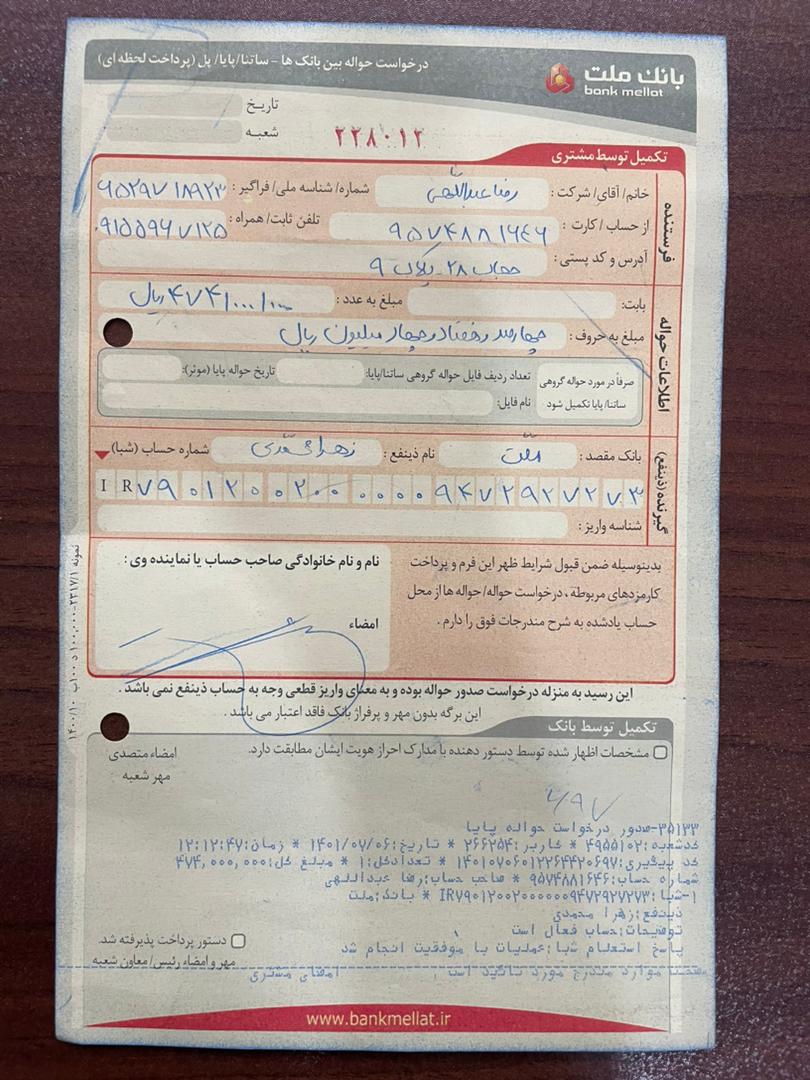 درخواست حواله بین بانک ها - ساتنا/پایا/ پل (پرداخت لحظه ای)
بانک ملت
bank mellat
تاریخ
شعبه
۲۲۸۰۱۲
تکمیل توسط مشتری
فرستنده
خانم/ آقای/ شرکت : رضا عبداللهی شماره/ شناسه ملی/ فراگیر : ۶۵۲۹۷۱۸۹۲۳
از حساب / کارت : ۹۵۷۴۸۸۱۶۴۶ تلفن ثابت/ همراه : ۰۹۱۵۵۹۶۷۱۲۵
آدرس و کد پستی : خیابان ۲۸ - پلاک ۹
اطلاعات حواله
بابت: مبلغ به عدد : ۴۷۴/۰۰۰/۰۰۰ ریال
مبلغ به حروف : چهارصد و هفتاد و چهار میلیون ریال
صرفاً در مورد حواله گروهی ساتنا/پایا تکمیل شود
تعداد ردیف فایل حواله گروهی ساتنا/پایا: تاریخ حواله پایا (موثر):
نام فایل:
گیرنده (ذینفع)
بانک مقصد : ملت نام ذینفع : زهرا محمدی شماره حساب (شبا)
IR۷۹۰۱۲۰۰۲۰۰۰۰۰۰۹۴۷۲۹۲۷۲۷۳
شناسه واریز :
بدینوسیله ضمن قبول شرایط ظهر این فرم و پرداخت
کارمزدهای مربوطه ، درخواست حواله/ حواله ها از محل
حساب یادشده به شرح مندرجات فوق را دارم .
نام و نام خانوادگی صاحب حساب یا نماینده وی :
امضاء
نمونه ۲۳۱۷/۱-۱۰۰,۰۰۰ د ۱۰۰ب ۱۴۰۰/۱۰
این رسید به منزله درخواست صدور حواله بوده و به معنای واریز قطعی وجه به حساب ذینفع نمی باشد .
این برگه بدون مهر و پرفراژ بانک فاقد اعتبار می باشد .
تکمیل توسط بانک
مشخصات اظهار شده توسط دستور دهنده با مدارک احراز هویت ایشان مطابقت دارد.
امضاء متصدی
مهر شعبه
۳۵۱۳۳-صدور درخواست حواله پایا
کدشعبه:۴۹۵۵۱۰۲ * کاربر:۲۶۶۲۵۴ * تاریخ:۱۴۰۱/۰۷/۰۶ * زمان:۱۲:۱۲:۴۷
کد پیگیری:۱۴۰۱۰۷۰۶۰۱۲۲۶۴۴۲۰۶۹۷ * تعدادکل:۱ * مبلغ کل:۴۷۴,۰۰۰,۰۰۰
شماره حساب:۹۵۷۴۸۸۱۶۴۶ * صاحب حساب:رضا عبداللهی
۱-شبا:IR۷۹۰۱۲۰۰۲۰۰۰۰۰۰۹۴۷۲۹۲۷۲۷۳ * بانک:ملت
ذینفع:زهرا محمدی
توضیحات:حساب فعال است
پاسخ استعلام شبا:عملیات با موفقیت انجام شد
صحت موارد مندرج مورد تائید است امضای مشتری
دستور پرداخت پذیرفته شد.
مهر و امضاء رئیس/ معاون شعبه
www.bankmellat.ir